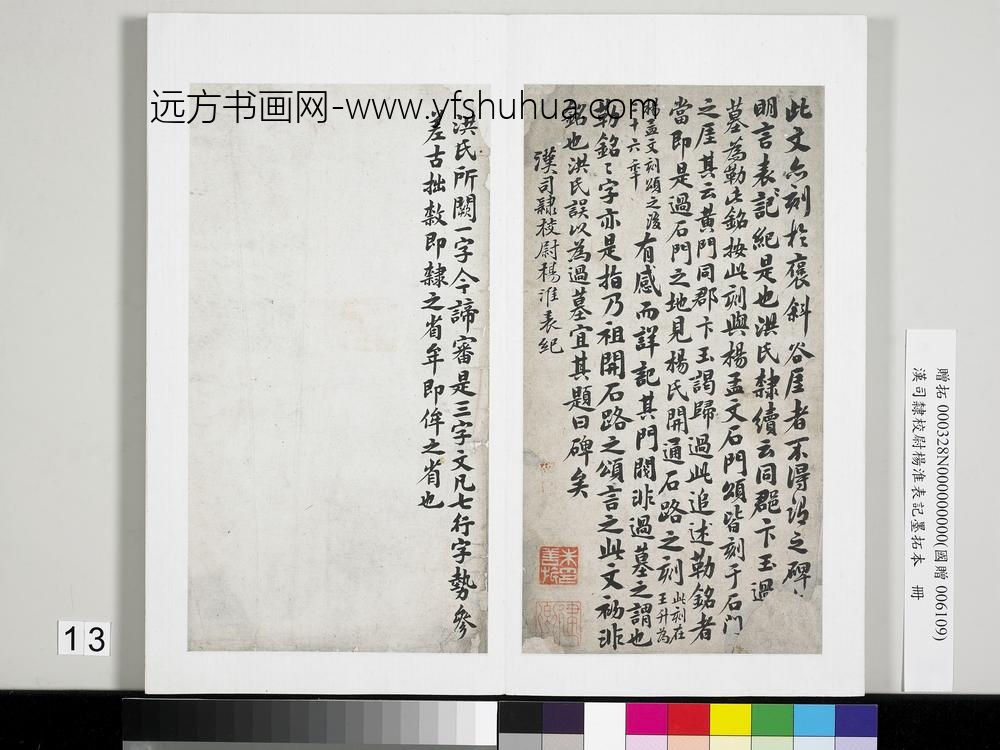 此文亦刻於褒斜谷厓者不得謂之碑
明言表記紀是也洪氏隸續云同郡卞玉過
墓為勒此銘按此刻與楊孟文石門頌皆刻于石門
之厓其云黃門同郡卞玉謁歸過此追述勒銘者
當即是過石門之地見楊氏開通石路之刻此刻在王升為
楊孟文刻頌之後二十六年有感而詳記其門閥非過墓之謂也
勒銘〻字亦是指乃祖開石路之頌言之此文初非
銘也洪氏誤以為過墓宜其題曰碑矣
漢司隸校尉楊淮表紀
洪氏所闕一字今諦審是三字文凡七行字勢參
差古拙㪇即隸之省牟即侔之省也
远方书画网-www.yfshuhua.com
朱翼盦
13
贈拓 000328N000000000(國贈 006109)
漢司隸校尉楊淮表記墨拓本 冊